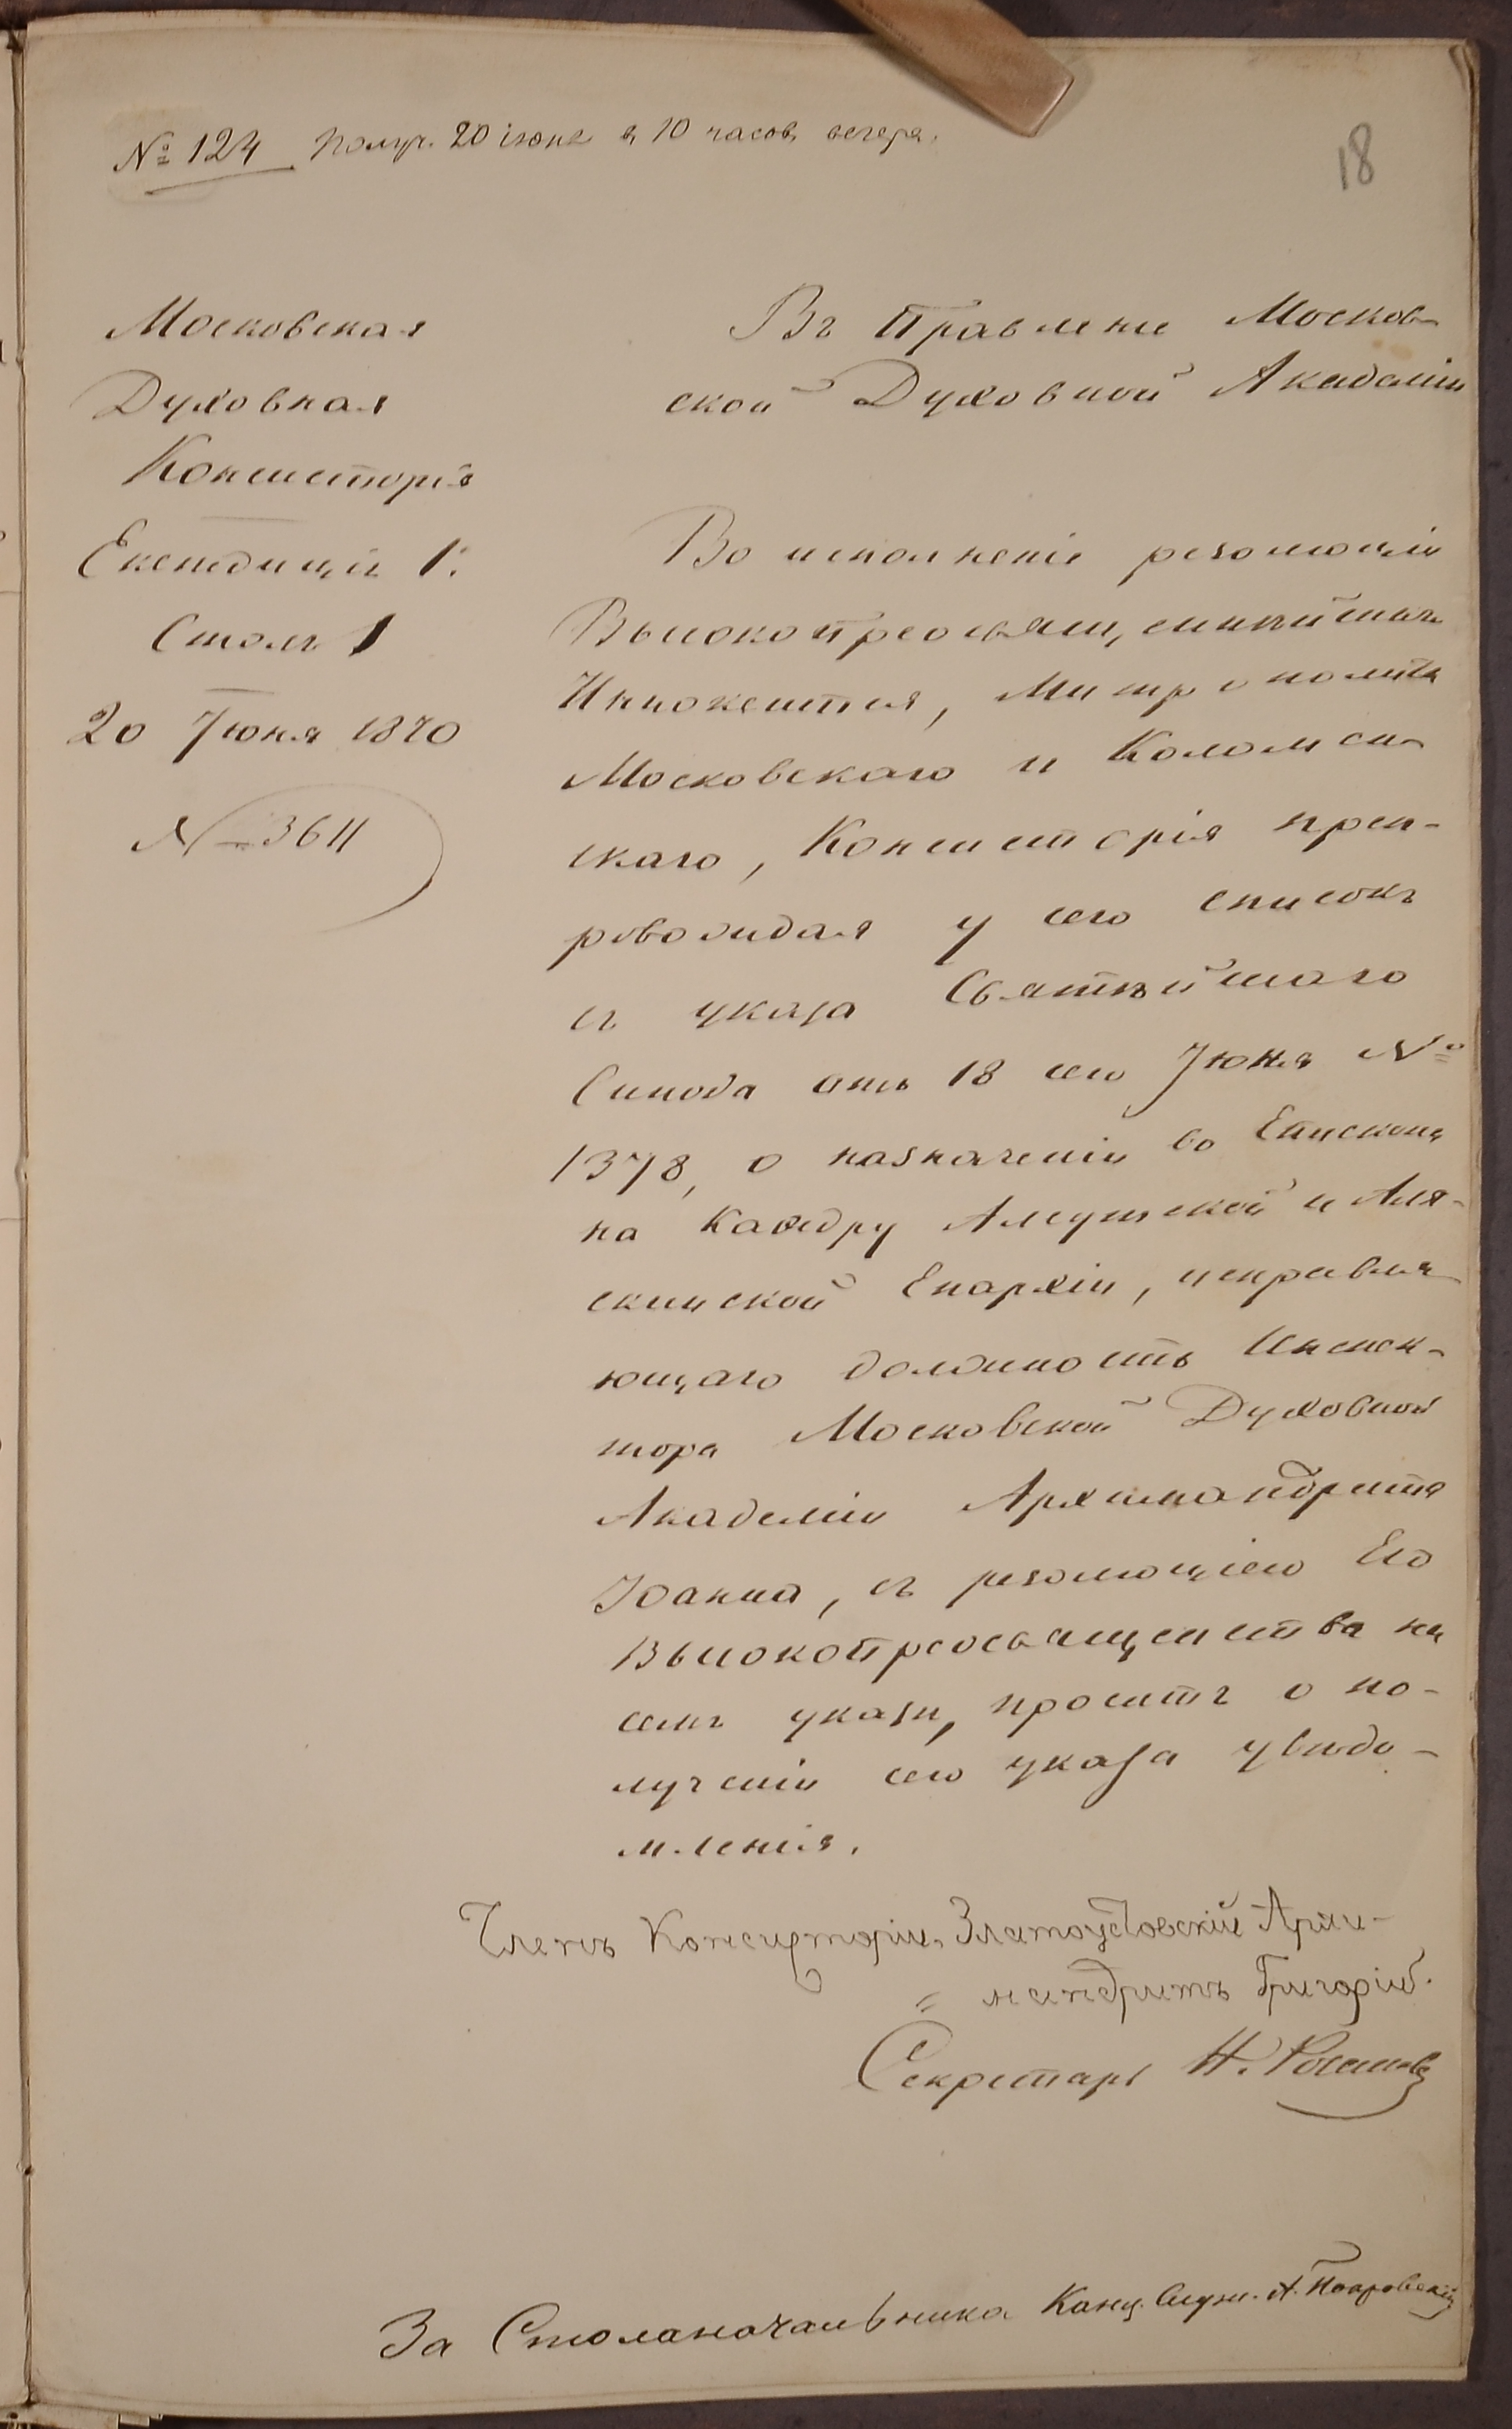 № 124 Получ. 20 іюня в 10 часов вечера.
18
Московская
Духовная
Консисторія
Експедиціи 1:
Столъ 1
20 Іюня 1870
№ 3611
Въ Правленіе Москов-
ской Духовной Академіи
Во исполненіе резолюціи
Высокопреосвященнѣйшаго
Иннокентія, Митрополита
Московскаго и Коломен-
скаго, Консисторія преп-
ровождая у сего списокъ
съ указа Святѣйшаго
Синода отъ 18 сего Іюня №
1378, о назначеніи во Епископа
на Каѳедру Алеутской и Аля-
скинской Епархіи, исправля-
ющаго должность Инспек-
тора Московской Духовной
Академіи Архимандрита
Іоанна, съ резолюціею Его
Высокопреосвященства на
семъ указѣ, проситъ о по-
лученіи сего указа увѣдо-
мленія.
Членъ Консисторіи, Златоустовскій Архи-
мандритъ Григорій.
Секретарь Н. Розановъ
За Столоначальника Канц. Служ. А. Покровскій